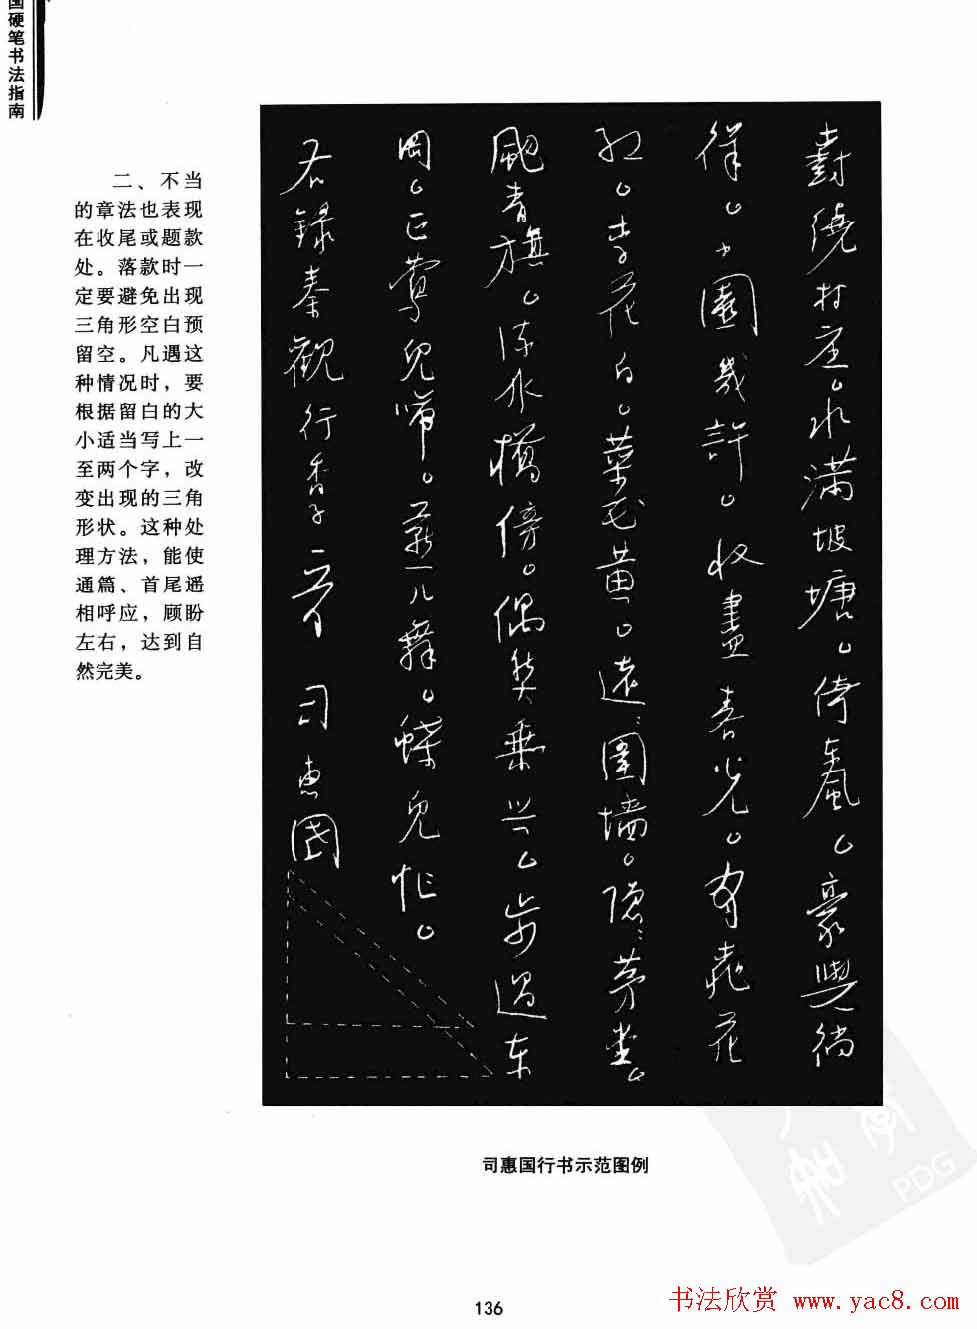 国硬笔书法指南
二、不当
的章法也表现
在收尾或题款
处。落款时一
定要避免出现
三角形空白预
留空。凡遇这
种情况时，要
根据留白的大
小适当写上一
至两个字，改
变出现的三角
形状。这种处
理方法，能使
通篇、首尾遥
相呼应，顾盼
左右，达到自
然完美。
樹繞村庄。水滿坡塘。倚東風。豪興徜
徉。小園幾許。收盡春光。有桃花
紅。李花白。菜花黄。遠:圍墙。隐:茅堂。
颺青旗。流水橋傍。偶然乘兴。步過东
岡。正鶯兒啼。燕儿舞。蝶兒忙。
右錄秦觀行香子一首 司惠國
司惠国行书示范图例
PDG
136
书法欣赏 www.yac8.com